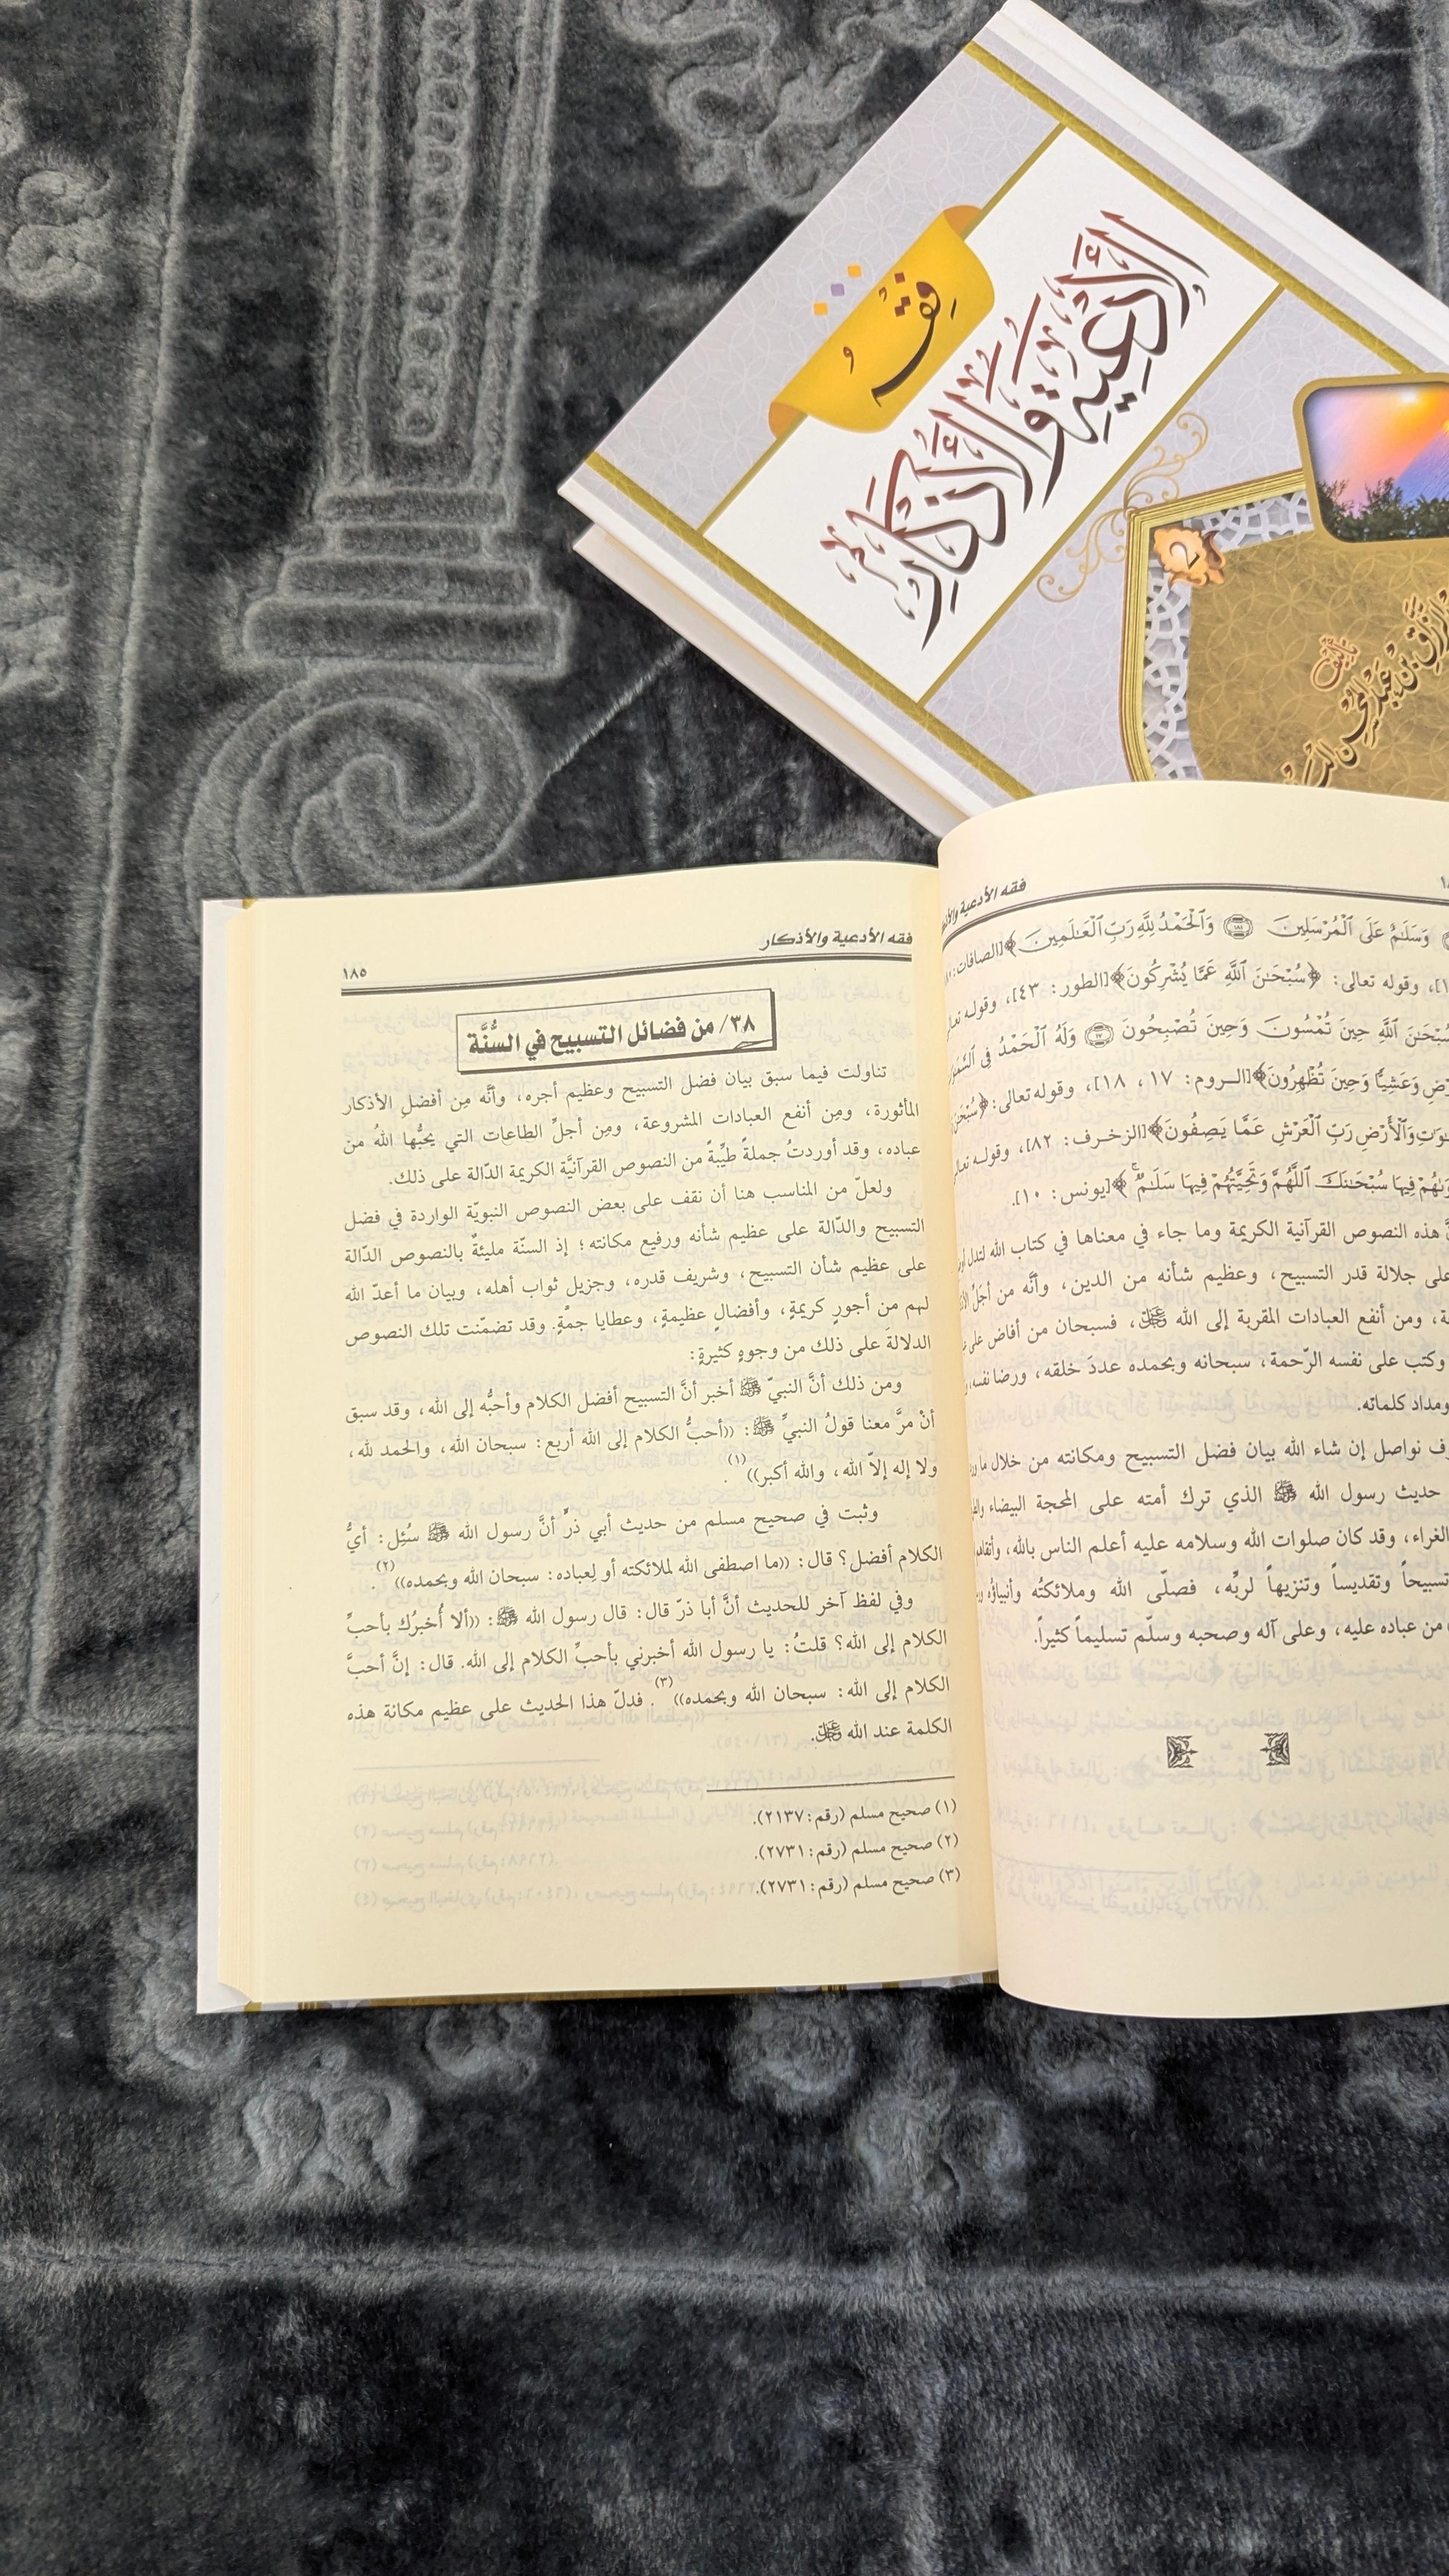 فقه
الأدعية والأذكار
2
تأليف
عبد المحسن
فقه الأدعية والأذكار
وَسَلَٰمٌ عَلَى ٱلْمُرْسَلِينَ ١٨١ وَٱلْحَمْدُ لِلَّهِ رَبِّ ٱلْعَٰلَمِينَ﴾[الصافات:
، وقوله تعالى: ﴿سُبْحَٰنَ ٱللَّهِ عَمَّا يُشْرِكُونَ﴾[الطور: ٤٣]، وقوله
حِينَ تُمْسُونَ وَحِينَ تُصْبِحُونَ ١٧ وَلَهُ ٱلْحَمْدُ فِي
وَعَشِيًّا وَحِينَ تُظْهِرُونَ﴾[الروم: ١٧، ١٨]، وقوله تعالى: ﴿
وَٱلْأَرْضِ رَبِّ ٱلْعَرْشِ عَمَّا يَصِفُونَ﴾[الزخرف: ٨٢]، وقوله
فِيهَا سُبْحَٰنَكَ ٱللَّهُمَّ وَتَحِيَّتُهُمْ فِيهَا سَلَٰمٌ ۚ﴾[يونس: ١٠].
هذه النصوص القرآنية الكريمة وما جاء في معناها في كتاب الله لتدل
على جلالة قدر التسبيح، وعظيم شأنه من الدين، وأنَّه من أجَلِّ
، ومن أنفع العبادات المقربة إلى الله ﷻ، فسبحان من أفاض على
وكتب على نفسه الرّحمة، سبحانه وبحمده عددَ خلقه، ورضا نفسه،
ومداد كلماته.
نواصل إن شاء الله بيان فضل التسبيح ومكانته من خلال ما
حديث رسول الله ﷺ الذي ترك أمته على المحجة البيضاء
الغراء، وقد كان صلوات الله وسلامه عليه أعلم الناس بالله،
تسبيحاً وتقديساً وتنزيهاً لربِّه، فصلّى الله وملائكتُه وأنبياؤُه
من عباده عليه، وعلى آله وصحبه وسلّم تسليماً كثيراً.
فقه الأدعية والأذكار
١٨٥
٣٨/ من فضائل التسبيح في السُّنَّة
تناولت فيما سبق بيان فضل التسبيح وعظيم أجره، وأنَّه مِن أفضلِ الأذكار
المأثورة، ومِن أنفع العبادات المشروعة، ومِن أجلِّ الطاعات التي يحبُّها اللهُ من
عباده، وقد أوردتُ جملةً طيِّبةً من النصوص القرآنيَّة الكريمة الدّالة على ذلك.
ولعلّ من المناسب هنا أن نقف على بعض النصوص النبويّة الواردة في فضل
التسبيح والدّالة على عظيم شأنه ورفيع مكانته؛ إذ السنّة مليئةٌ بالنصوص الدّالة
على عظيم شأن التسبيح، وشريف قدره، وجزيل ثواب أهله، وبيان ما أعدّ الله
لهم من أجورٍ كريمةٍ، وأفضالٍ عظيمةٍ، وعطايا جمَّةٍ. وقد تضمّنت تلك النصوص
الدلالةَ على ذلك من وجوهٍ كثيرةٍ:
ومن ذلك أنَّ النبيّ ﷺ أخبر أنَّ التسبيح أفضل الكلام وأحبُّه إلى الله، وقد سبق
أنْ مرَّ معنا قولُ النبيِّ ﷺ: ((أحبُّ الكلام إلى الله أربع: سبحان الله، والحمد لله،
ولا إله إلاّ الله، والله أكبر))(١).
وثبت في صحيح مسلم من حديث أبي ذرٍّ أنَّ رسول الله ﷺ سُئِل: أيُّ
الكلام أفضل؟ قال: ((ما اصطفى الله لملائكته أو لِعباده: سبحان الله وبحمده))(٢).
وفي لفظ آخر للحديث أنَّ أبا ذرّ قال: قال رسول الله ﷺ: ((ألا أُخبرُك بأحبِّ
الكلام إلى الله؟ قلتُ: يا رسول الله أخبرني بأحبِّ الكلام إلى الله. قال: إنَّ أحبَّ
الكلام إلى الله: سبحان الله وبحمده))(٣). فدلّ هذا الحديث على عظيم مكانة هذه
الكلمة عند الله ﷻ.
(١) صحيح مسلم (رقم: ٢١٣٧).
(٢) صحيح مسلم (رقم: ٢٧٣١).
(٣) صحيح مسلم (رقم: ٢٧٣١).